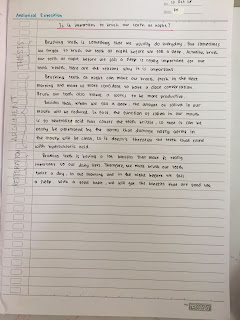 Analytical Exposition
Is it important to brush our teeth at night?
Brushing teeth is something that we usually do everyday. But sometimes
we forget to brush our teeth at night before we fall a sleep. Actually, brush
our teeth at night before we fall a sleep is really important for our
teeth health. Here are the reasons why is it important:
Brushing teeth at night can make our breath fresh in the next
morning and make us more confident to have a close conversation.
Brush our teeth also helping a saliva to be more productive.
Besides that, when we fall a sleep, the amount of saliva in our
mouth will be reduced. In fact, the function of saliva in our mouth
is to neutralize acid that causes the teeth brittle, so that it can be
easily be penetrated by the worms that dissolve
the mouth will be clean, it is doesn't therefore our teeth that
with hydrochloric acid.
Brushing teeth is having a lot benefits that make it really
important to our daily lives. Therefore, we must brush our teeth
twice a day, in the morning and in the night before we fall
a sleep. With a good habit, we will get the benefits that are good too.